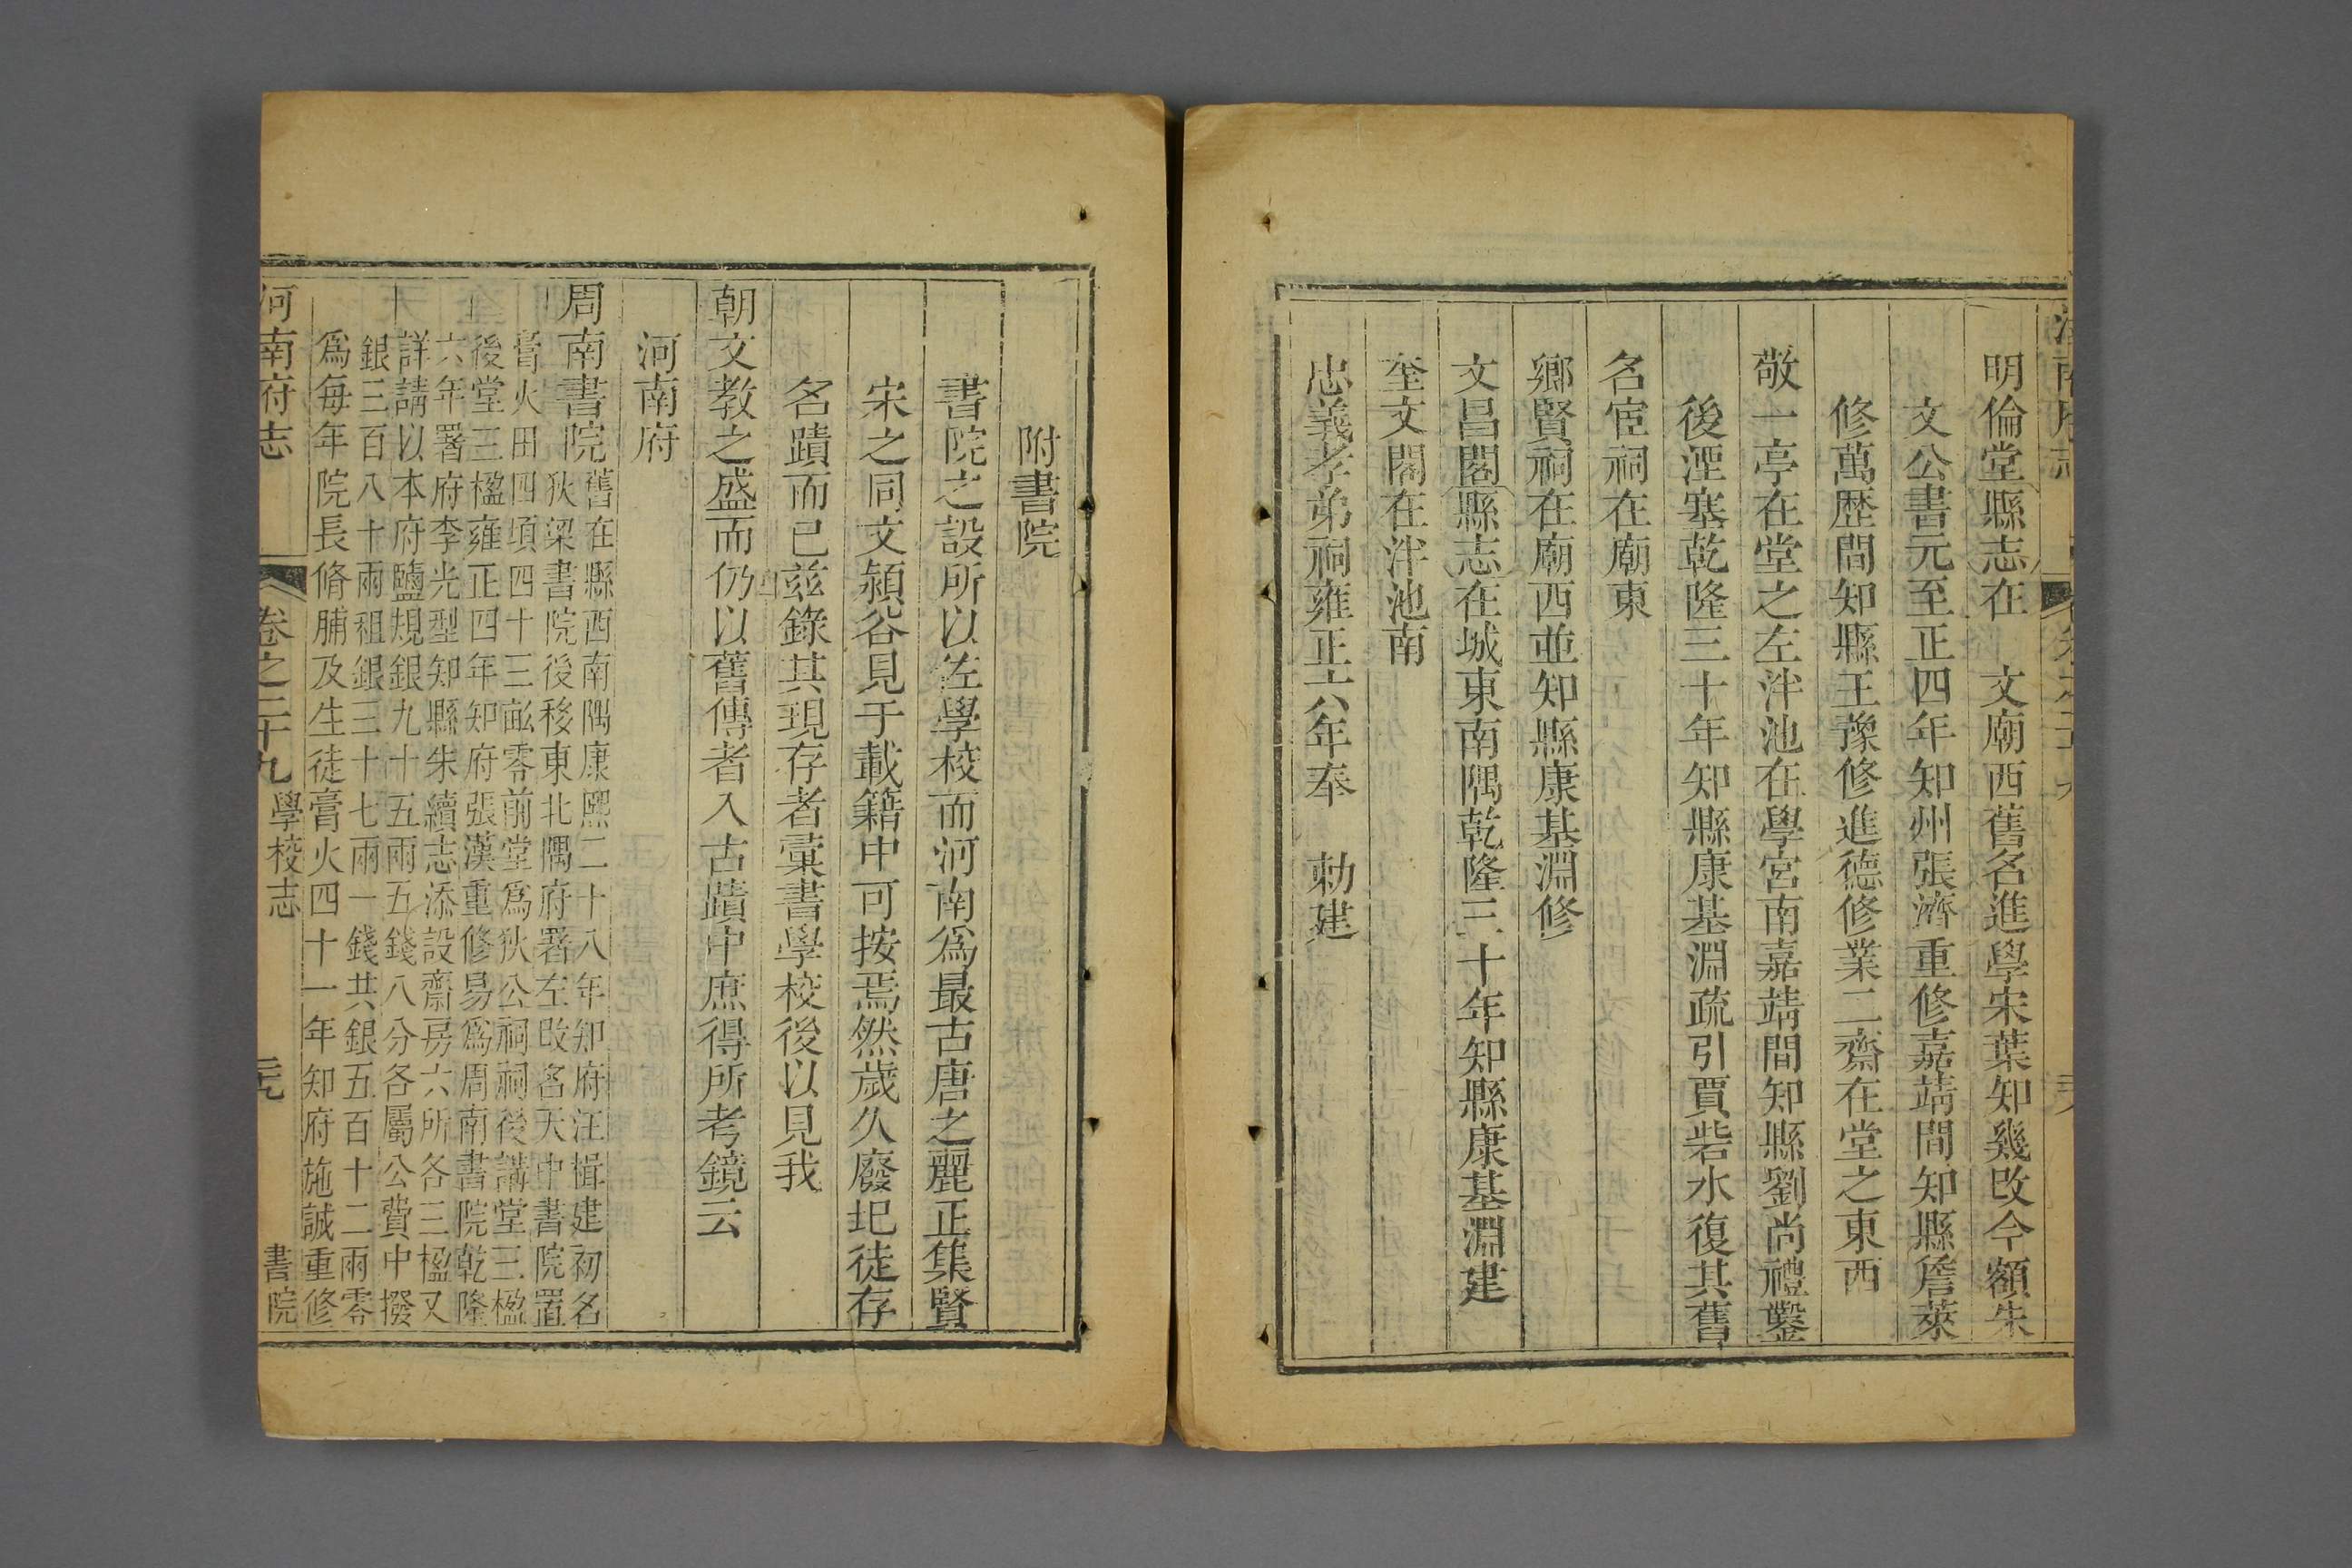 明倫堂縣志在　文廟西舊名進學宋葉知幾改今額朱
文公書元至正四年知州張濟重修嘉靖間知縣詹萊
修萬歴間知縣王豫修進德修業二齋在堂之東西
敬一亭在堂之左泮池在學宮南嘉靖間知縣劉尚禮鑿
後湮塞乾隆三十年知縣康基淵疏引賈砦水復其舊
名宦祠在廟東
鄉賢祠在廟西並知縣康基淵修
文昌閣縣志在城東南隅乾隆三十年知縣康基淵建
奎文閣在泮池南
忠義孝弟祠雍正六年奉　勅建
附書院
書院之設所以佐學校而河南爲最古唐之麗正集賢
宋之同文潁谷見于載籍中可按焉然歲久廢圯徒存
名蹟而已兹錄其現存者彙書學校後以見我
朝文教之盛而仍以舊傳者入古蹟中庶得所考鏡云
河南府
周南書院
舊在縣西南隅康熙二十八年知府汪楫建初名
狄梁書院後移東北隅府署左改名天中書院置
膏火田四頃四十三畝零前堂爲狄公祠祠後講堂三楹
後堂三楹雍正四年知府張漢重修易爲周南書院乾隆
六年署府李光型知縣朱續志添設齋房六所各三楹又
詳請以本府鹽規銀九十五兩五錢八分各屬公費中撥
銀三百八十兩租銀三十七兩一錢共銀五百十二兩零
爲每年院長脩脯及生徒膏火四十一年知府施誠重修
河南府志
卷之二十九
學校志
書院